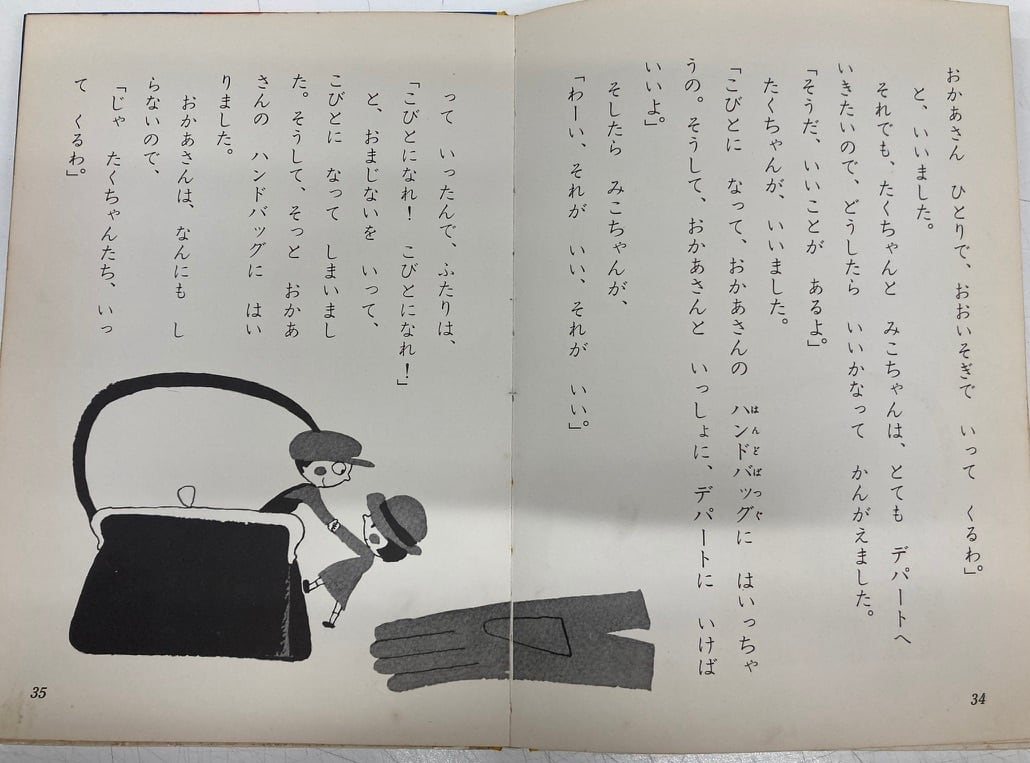 おかあさん　ひとりで、おおいそぎで　いって　くるわ。」
と、いいました。
それでも、たくちゃんと　みこちゃんは、とても　デパートへ
いきたいので、どうしたら　いいかなって　かんがえました。
「そうだ、いいことが　あるよ。」
たくちゃんが、いいました。
「こびとに　なって、おかあさんの　ハンドバッグに　はいっちゃ
はんどばつぐ
うの。そうして、おかあさんと　いっしょに、デパートに　いけば
いいよ。」
そしたら　みこちゃんが、
「わーい、それが　いい、それが　いい。」
34
って　いったんで、ふたりは、
「こびとになれ！　こびとになれ！」
と、おまじないを　いって、
こびとに　なって　しまいまし
た。そうして、そっと　おかあ
さんの　ハンドバッグに　はい
りました。
おかあさんは、なんにも　し
らないので、
「じゃ　たくちゃんたち、いっ
て　くるわ。」
35